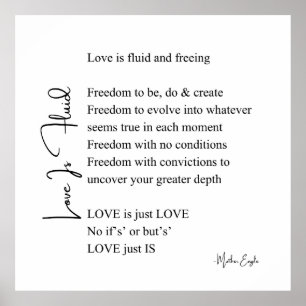 Love Is Fluid
Love is fluid and freeing
Freedom to be, do & create
Freedom to evolve into whatever
seems true in each moment
Freedom with no conditions
Freedom with convictions to
uncover your greater depth
LOVE is just LOVE
No if's' or but's'
LOVE just IS